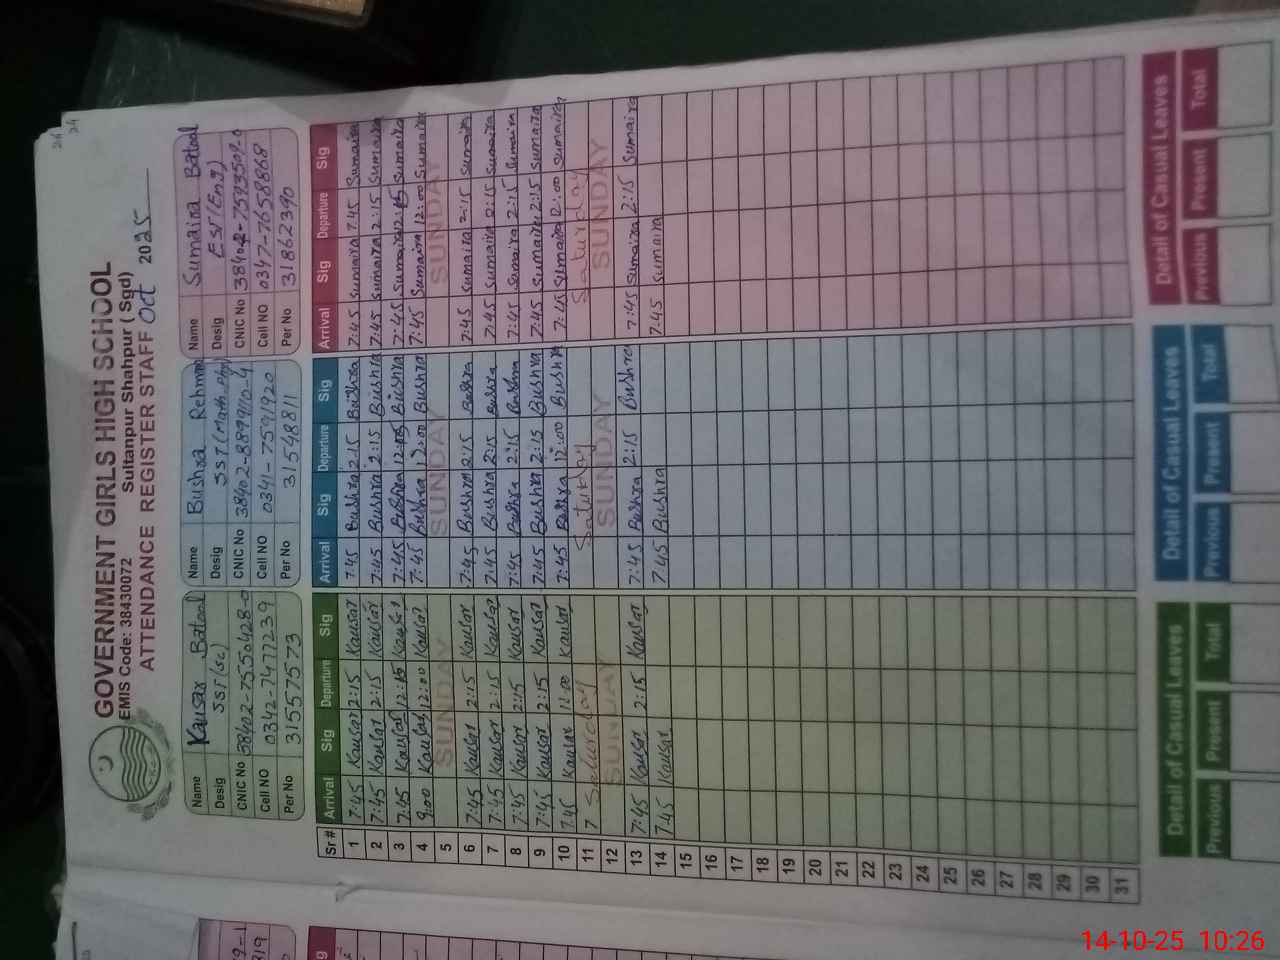 GOVERNMENT GIRLS HIGH SCHOOL
EMIS Code: 38430072 Sultanpur Shahpur ( Sgd)
ATTENDANCE REGISTER STAFF Oct 2025
Name Kausar Batool
Desig SST(Sc)
CNIC No 38402-7550428-0
Cell NO 0342-7477239
Per No 31557573
Name Bushra Rehman
Desig SST(Math.Phy)
CNIC No
Cell NO 0341-7591920
Per No 31548811
Name Sumaira Batool
Desig EST(Eng)
CNIC No
Cell NO 0347-7658868
Per No 31862390
Sr# Arrival Sig Departure Sig Arrival Sig Departure Sig Arrival Sig Departure Sig
1 7:45 Kausar 2:15 Kausar 7:45 Bushra 2:15 Bushra 7:45 Sumaira 7:45 Sumaira
2 7:45 Kausar 2:15 Kausar 7:45 Bushra 2:15 Bushra 7:45 Sumaira 2:15 Sumaira
3 7:45 Kausar 12:15 Kausar 7:45 Bushra Bushra 7:45 Sumaira Sumaira
4 9:00 Kausar 12:00 Kausar 7:45 Bushra 12:00 Bushra 7:45 Sumaira 12:00 Sumaira
5 SUNDAY SUNDAY SUNDAY
6 7:45 Kausar 2:15 Kausar 7:45 Bushra 2:15 Bushra 7:45 Sumaira 2:15 Sumaira
7 7:45 Kausar 2:15 Kausar 7:45 Bushra 2:15 Bushra 7:45 Sumaira 2:15 Sumaira
8 7:45 Kausar 2:15 Kausar 7:45 Bushra 2:15 Bushra 7:45 Sumaira 2:15 Sumaira
9 7:45 Kausar 2:15 Kausar 7:45 Bushra 2:15 Bushra 7:45 Sumaira 2:15 Sumaira
10 7:45 Kausar Kausar 7:45 Bushra 12:00 Bushra 7:45 Sumaira 12:00 Sumaira
11 7 Saturday Saturday Saturday
12 SUNDAY SUNDAY SUNDAY
13 7:45 Kausar 2:15 Kausar 7:45 Bushra 2:15 Bushra 7:45 Sumaira 2:15 Sumaira
14 7:45 Kausar 7:45 Bushra 7:45 Sumaira
15
16
17
18
19
20
21
22
23
24
25
26
27
28
29
30
31
Detail of Casual Leaves Detail of Casual Leaves Detail of Casual Leaves
Previous Present Total Previous Present Total Previous Present Total
14-10-25 10:26